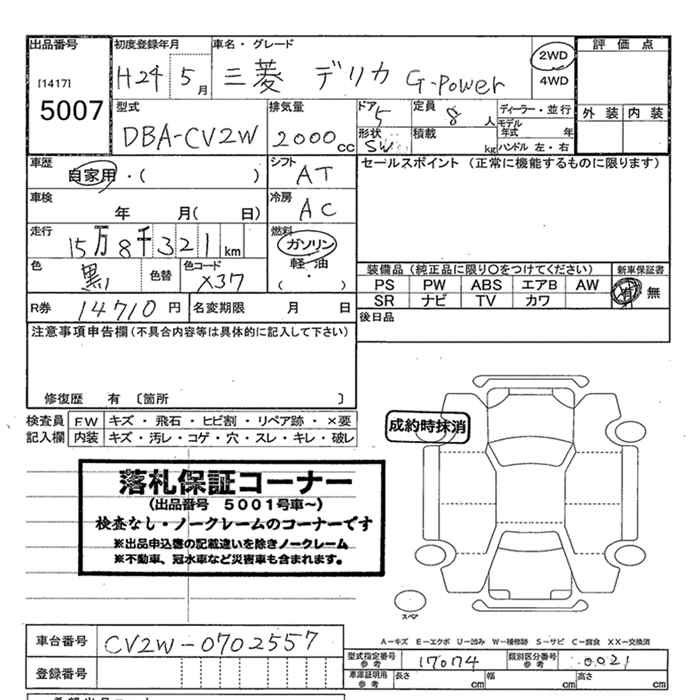 出品番号 初度登録年月 車名・グレード 2WD 評価点
[1417] H24 5月 三菱 デリカ G-Power 4WD
5007 外装 内装
型式 排気量 ドア 5 定員 8人 ディーラー・並行
DBA-CV2W 2000cc 形状 SW 積載 kg モデル年式 年
ハンドル 左・右
車歴 自家用・( ) シフト AT セールスポイント (正常に機能するものに限ります)
車検 年 月( 日) 冷房 AC
走行 15万8千321km 燃料 ガソリン
軽油
( ・ )
色 黒 色替 色コード X37
装備品(純正品に限り○をつけてください) 新車保証書
PS PW ABS エアB AW 有 無
SR ナビ TV カワ
R券 14710円 名変期限 月 日 後日品
注意事項申告欄(不具合内容等は具体的に記入して下さい)
修復歴 有 〔箇所 〕
検査員記入欄 F.W キズ・飛石・ヒビ割・リペア跡・×要
内装 キズ・汚レ・コゲ・穴・スレ・キレ・破レ
成約時抹消
落札保証コーナー
(出品番号 5001号車~)
検査なし・ノークレームのコーナーです
※出品申込書の記載違いを除きノークレーム
※不動車、冠水車など災害車も含まれます。
スペア
A-キズ E-エクボ U-凹み W-補修跡 S-サビ C-腐食 XX-交換済
車台番号 CV2W-0702557
型式指定番号 参考 17074 類別区分番号 参考 0021
登録番号
車庫証明用 参考 長さ cm 幅 cm 高さ cm